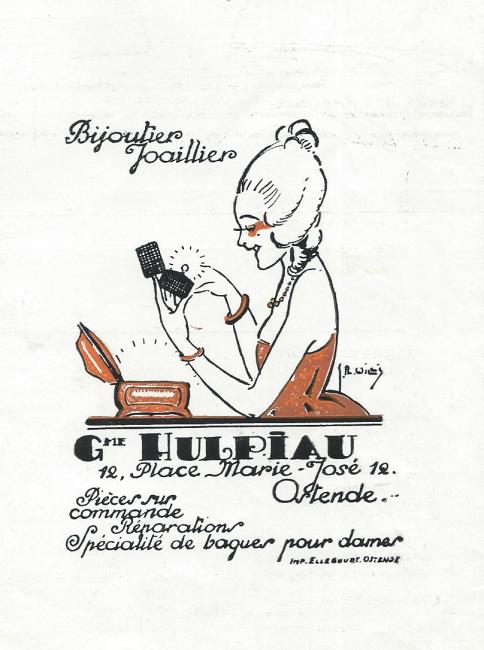 Bijoutier
Joaillier
Gme HULPIAU
12, Place Marie-José 12.
Ostende.
Pièces sur
commande
Réparations
Spécialité de bagues pour dames
IMP. ELLEBOUDT. OSTENDE